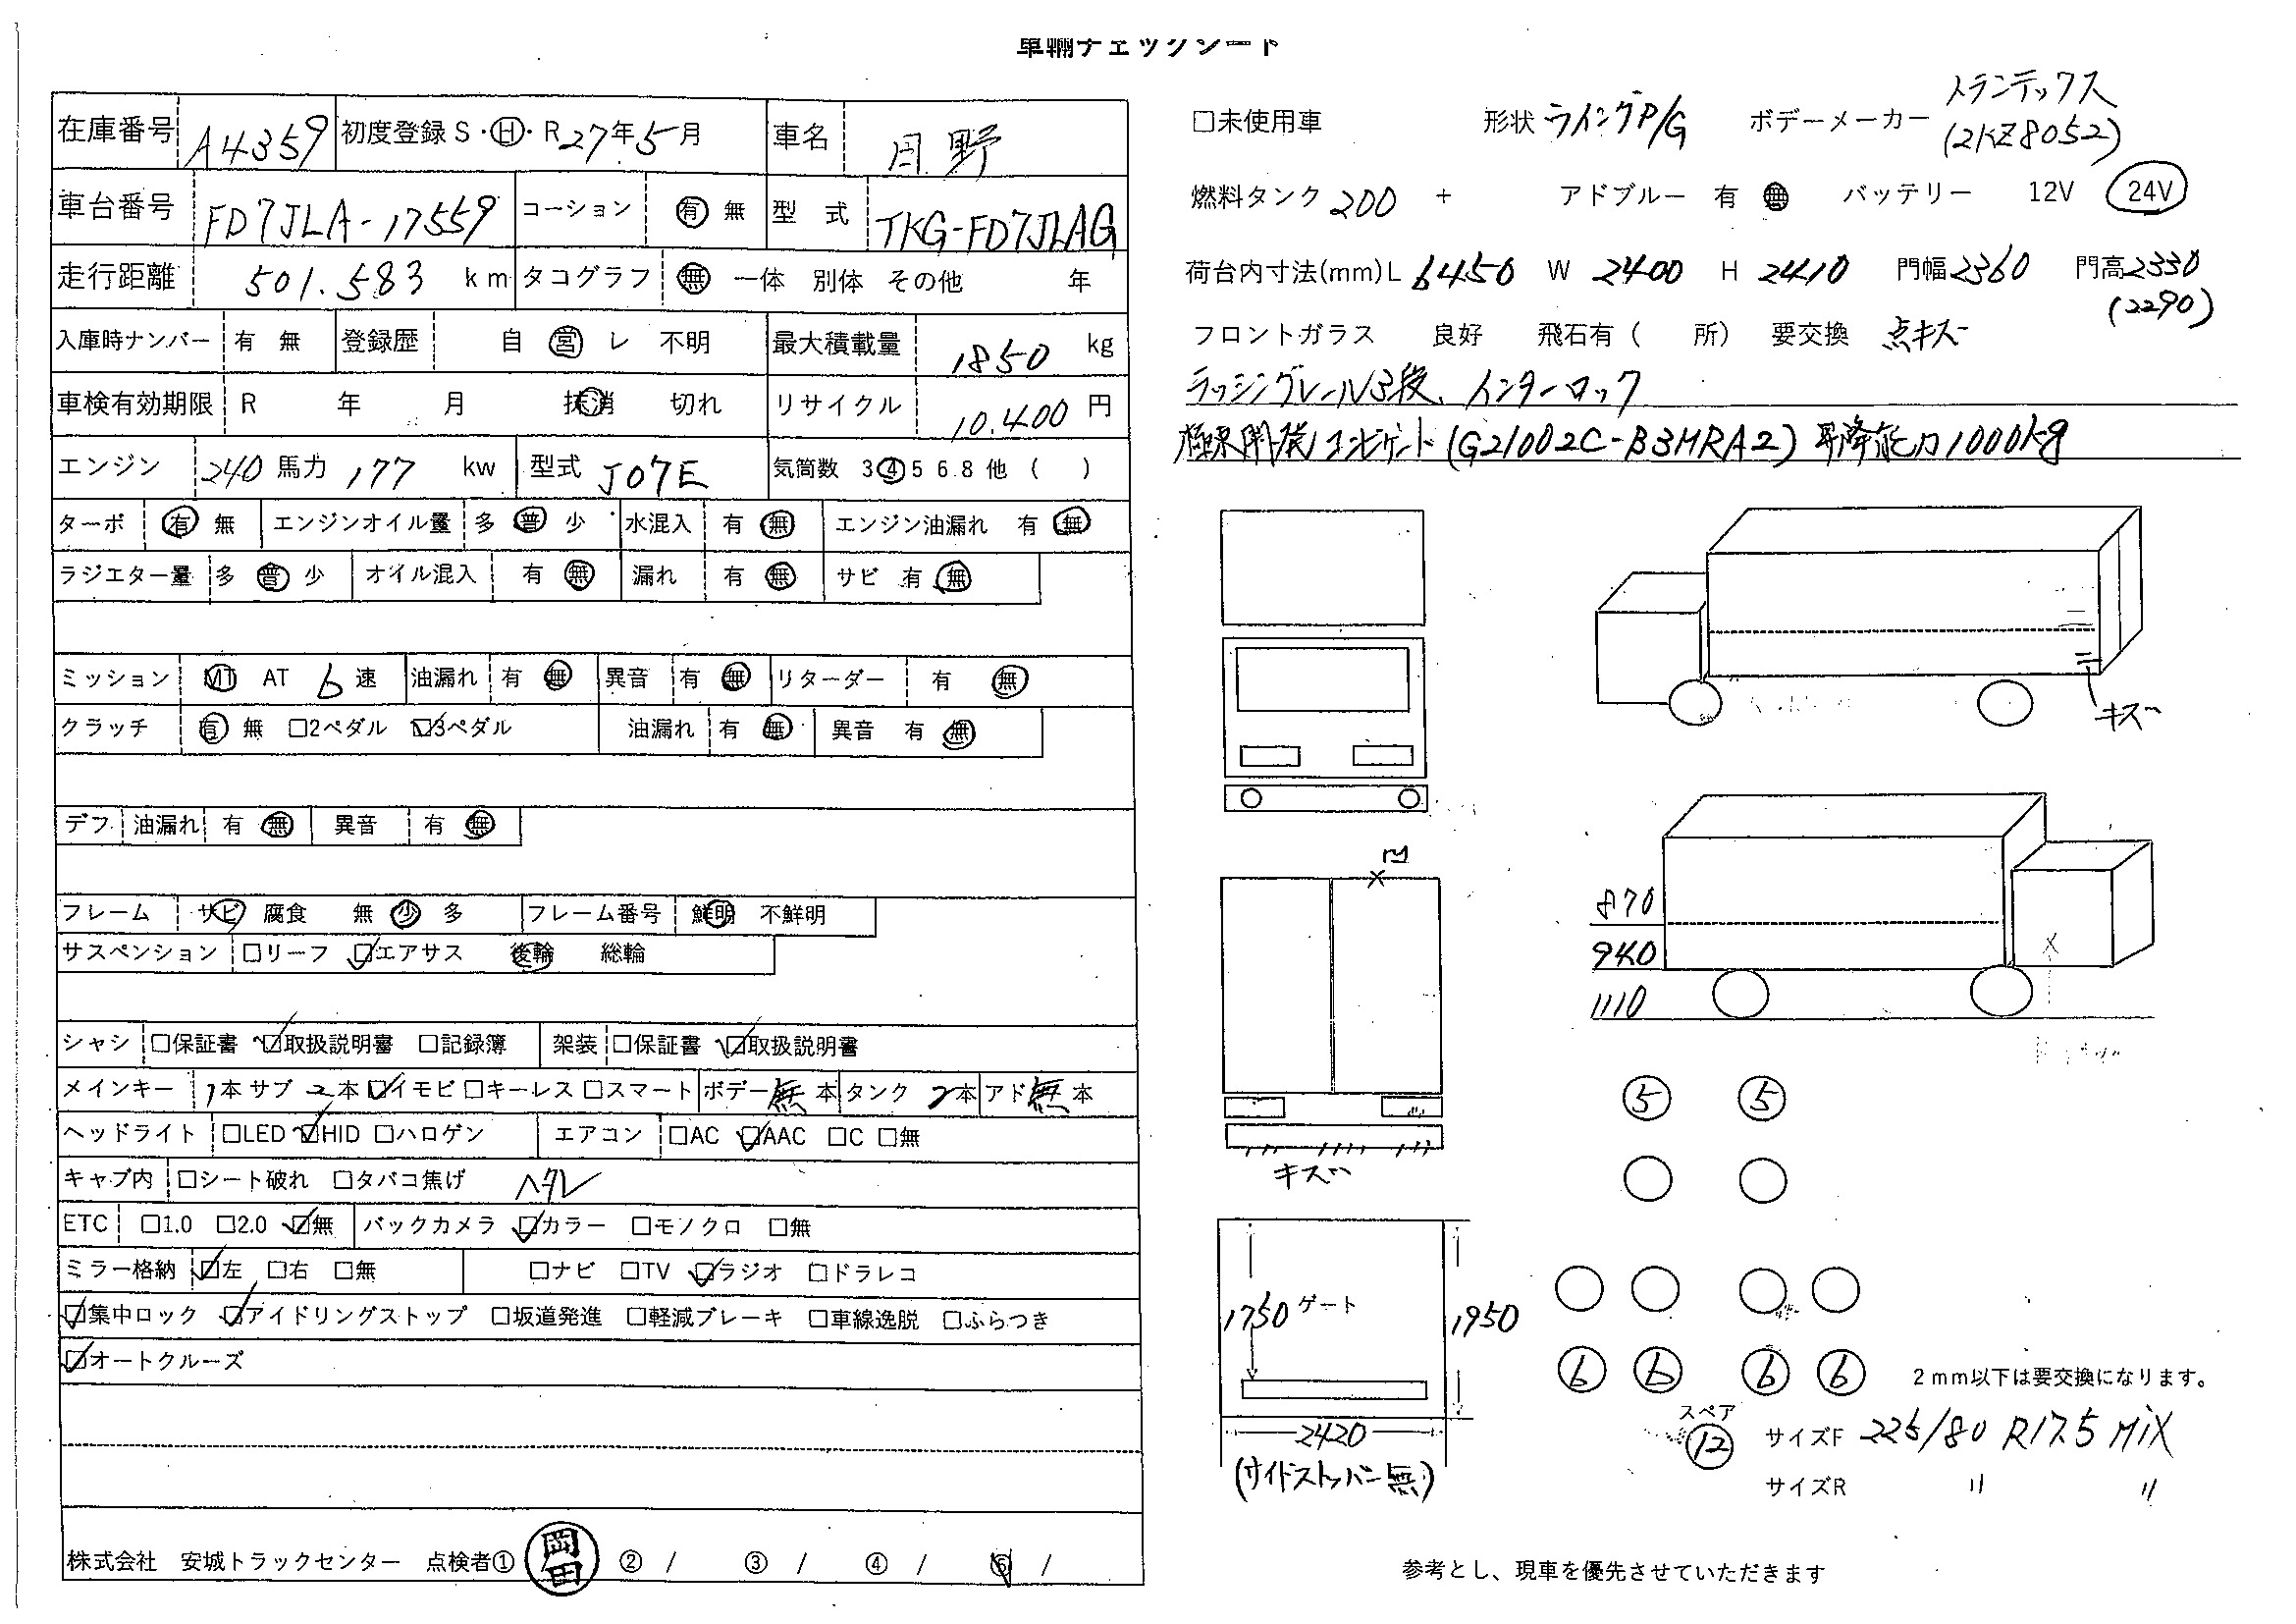 車輌チェックシート
在庫番号 A4359 初度登録 S・Ⓗ・R 27年5月 車名 日野
車台番号 FD7JLA-17559 コーション 有 無 型式 TKG-FD7JLAG
走行距離 501.583 km タコグラフ 無 一体 別体 その他 年
入庫時ナンバー 有 無 登録歴 自 営 レ 不明 最大積載量 1850 kg
車検有効期限 R 年 月 抹消 切れ リサイクル 10.400 円
エンジン 240 馬力 177 kw 型式 J07E 気筒数 3 ④ 5 6.8 他 ( )
ターボ 有 無 エンジンオイル量 多 普 少 水混入 有 無 エンジン油漏れ 有 無
ラジエター量 多 普 少 オイル混入 有 無 漏れ 有 無 サビ 有 無
ミッション MT AT 6 速 油漏れ 有 無 異音 有 無 リターダー 有 無
クラッチ 有 無 □2ペダル ☑3ペダル 油漏れ 有 無 異音 有 無
デフ 油漏れ 有 無 異音 有 無
フレーム サビ 腐食 無 少 多 フレーム番号 鮮明 不鮮明
サスペンション □リーフ ☑エアサス 後輪 総輪
シャシ □保証書 ☑取扱説明書 □記録簿 架装 □保証書 ☑取扱説明書
メインキー 1本 サブ 2本 ☑イモビ □キーレス □スマート ボデー 無 本 タンク 2本 アド 無 本
ヘッドライト □LED ☑HID □ハロゲン エアコン □AC ☑AAC □C □無
キャブ内 □シート破れ □タバコ焦げ ヘタレ
ETC □1.0 □2.0 ☑無 バックカメラ ☑カラー □モノクロ □無
ミラー格納 ☑左 □右 □無 □ナビ □TV ☑ラジオ □ドラレコ
☑集中ロック ☑アイドリングストップ □坂道発進 □軽減ブレーキ □車線逸脱 □ふらつき
☑オートクルーズ
株式会社 安城トラックセンター 点検者① / 岡田 ② / ③ / ④ / ⑤ /
□未使用車 形状 ウイングP/G ボデーメーカー トランテックス
(2KZ8052)
燃料タンク 200 + アドブルー 有 無 バッテリー 12V 24V
荷台内寸法(mm) L 6450 W 2400 H 2410 門幅 2360 門高 2330
(2290)
フロントガラス 良好 飛石有 ( 所) 要交換 点キズ
ラッシングレール3段、インターロック
極東開発 コンビゲート (G21002C-B3MRA2) 昇降能力1000kg
キズ
凹
870
940
1110
キズ
⑤ ⑤
1750 ゲート 1950
2420
(サイドストッパー無)
⑥ ⑥ ⑥ ⑥ 2mm以下は要交換になります。
スペア
⑫ サイズF 225/80 R17.5 MiX
サイズR 〃 〃
参考とし、現車を優先させていただきます